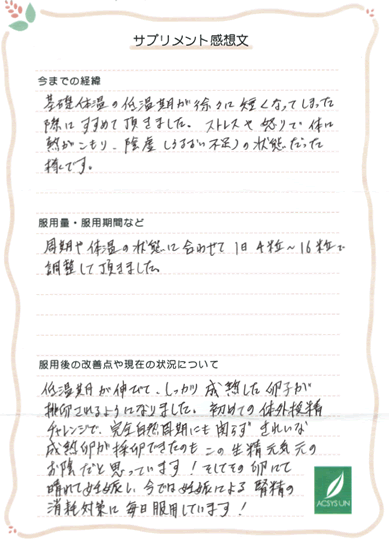 サプリメント感想文
今までの経緯
基礎体温の低温期が徐々に短くなってしまった
際にすすめて頂きました。ストレスや怒りで体に
熱がこもり、陰虚(うるおい不足)の状態だった
様です。
服用量・服用期間など
周期や体温の状態に合わせて1日4粒～16粒で
調整して頂きました。
服用後の改善点や現在の状況について
低温期が伸びて、しっかり成熟した卵子が
排卵されるようになりました。初めての体外授精
チャレンジで、完全自然周期にも関らず きれいな
成熟卵が採卵できたのも この生精元気元の
お陰だと思っています！そしてその卵にて
晴れて妊娠し、今では妊娠による腎精の
消耗対策に毎日服用しています！
ACSYSUN